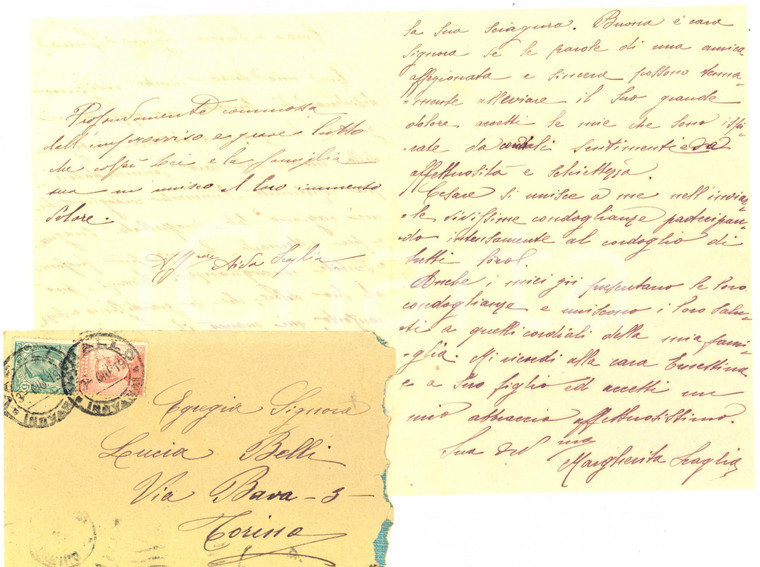 Profondamente commossa
dall'improvviso e grave lutto
che colpì Lei e la famiglia
sua mi unisco al loro immenso
dolore.
Aff.ma Aida Scaglia
la sua sciagura. Buona e cara
Signora se le parole di una amica
affezionata e sincera possono tenua-
mente alleviare il Suo grande
dolore accetti le mie che sono ispi-
rate da sentimenti
affettuosità e schiettezza.
Cesare si unisce a me nell'inviar-
le vivissime condoglianze partecipan-
do intensamente al cordoglio di
tutti loro!
Anche i miei presentano le loro
condoglianze e uniscono i loro salu-
ti a quelli cordiali della mia fami-
glia. Mi ricordi alla cara
e a Suo figlio ed accetti un
mio abbraccio affettuosissimo.
Sua dev.ma
Margherita Scaglia
Egregia Signora
Lucia Belli
Via Bava - 3 -
Torino